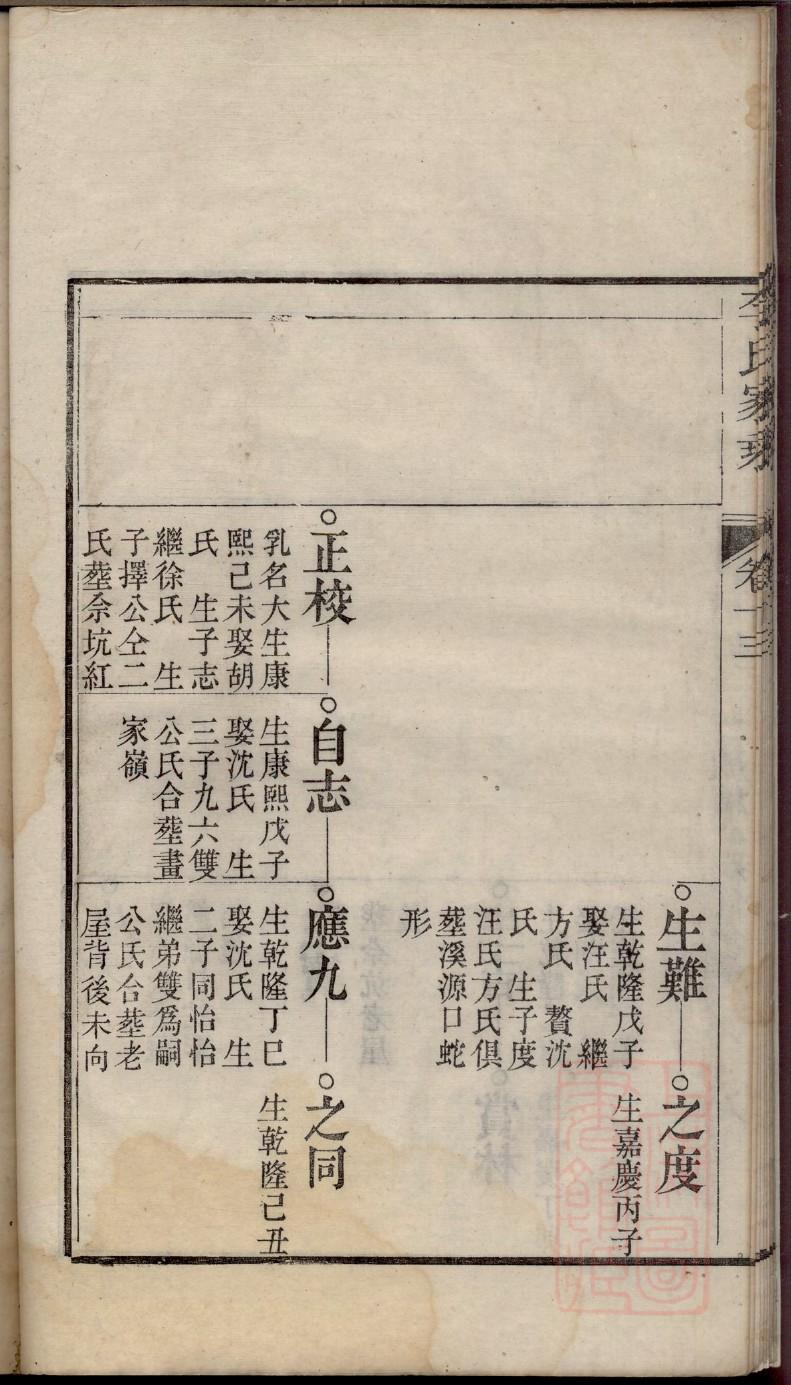 李氏家乘
卷十三
生難
生乾隆戊子
娶汪氏 繼
方氏 贅沈
氏 生子度
汪氏方氏俱
塟溪源口蛇
形
之度
生嘉慶丙子
正校
乳名大生康
熙己未娶胡
氏 生子志
繼徐氏 生
子擇公仝二
氏塟佘坑紅
自志
生康熙戊子
娶沈氏 生
三子九六雙
公氏合塟畫
家嶺
應九
生乾隆丁巳
娶沈氏 生
二子同怡怡
繼弟雙爲嗣
公氏合塟老
屋背後未向
之同
生乾隆己丑